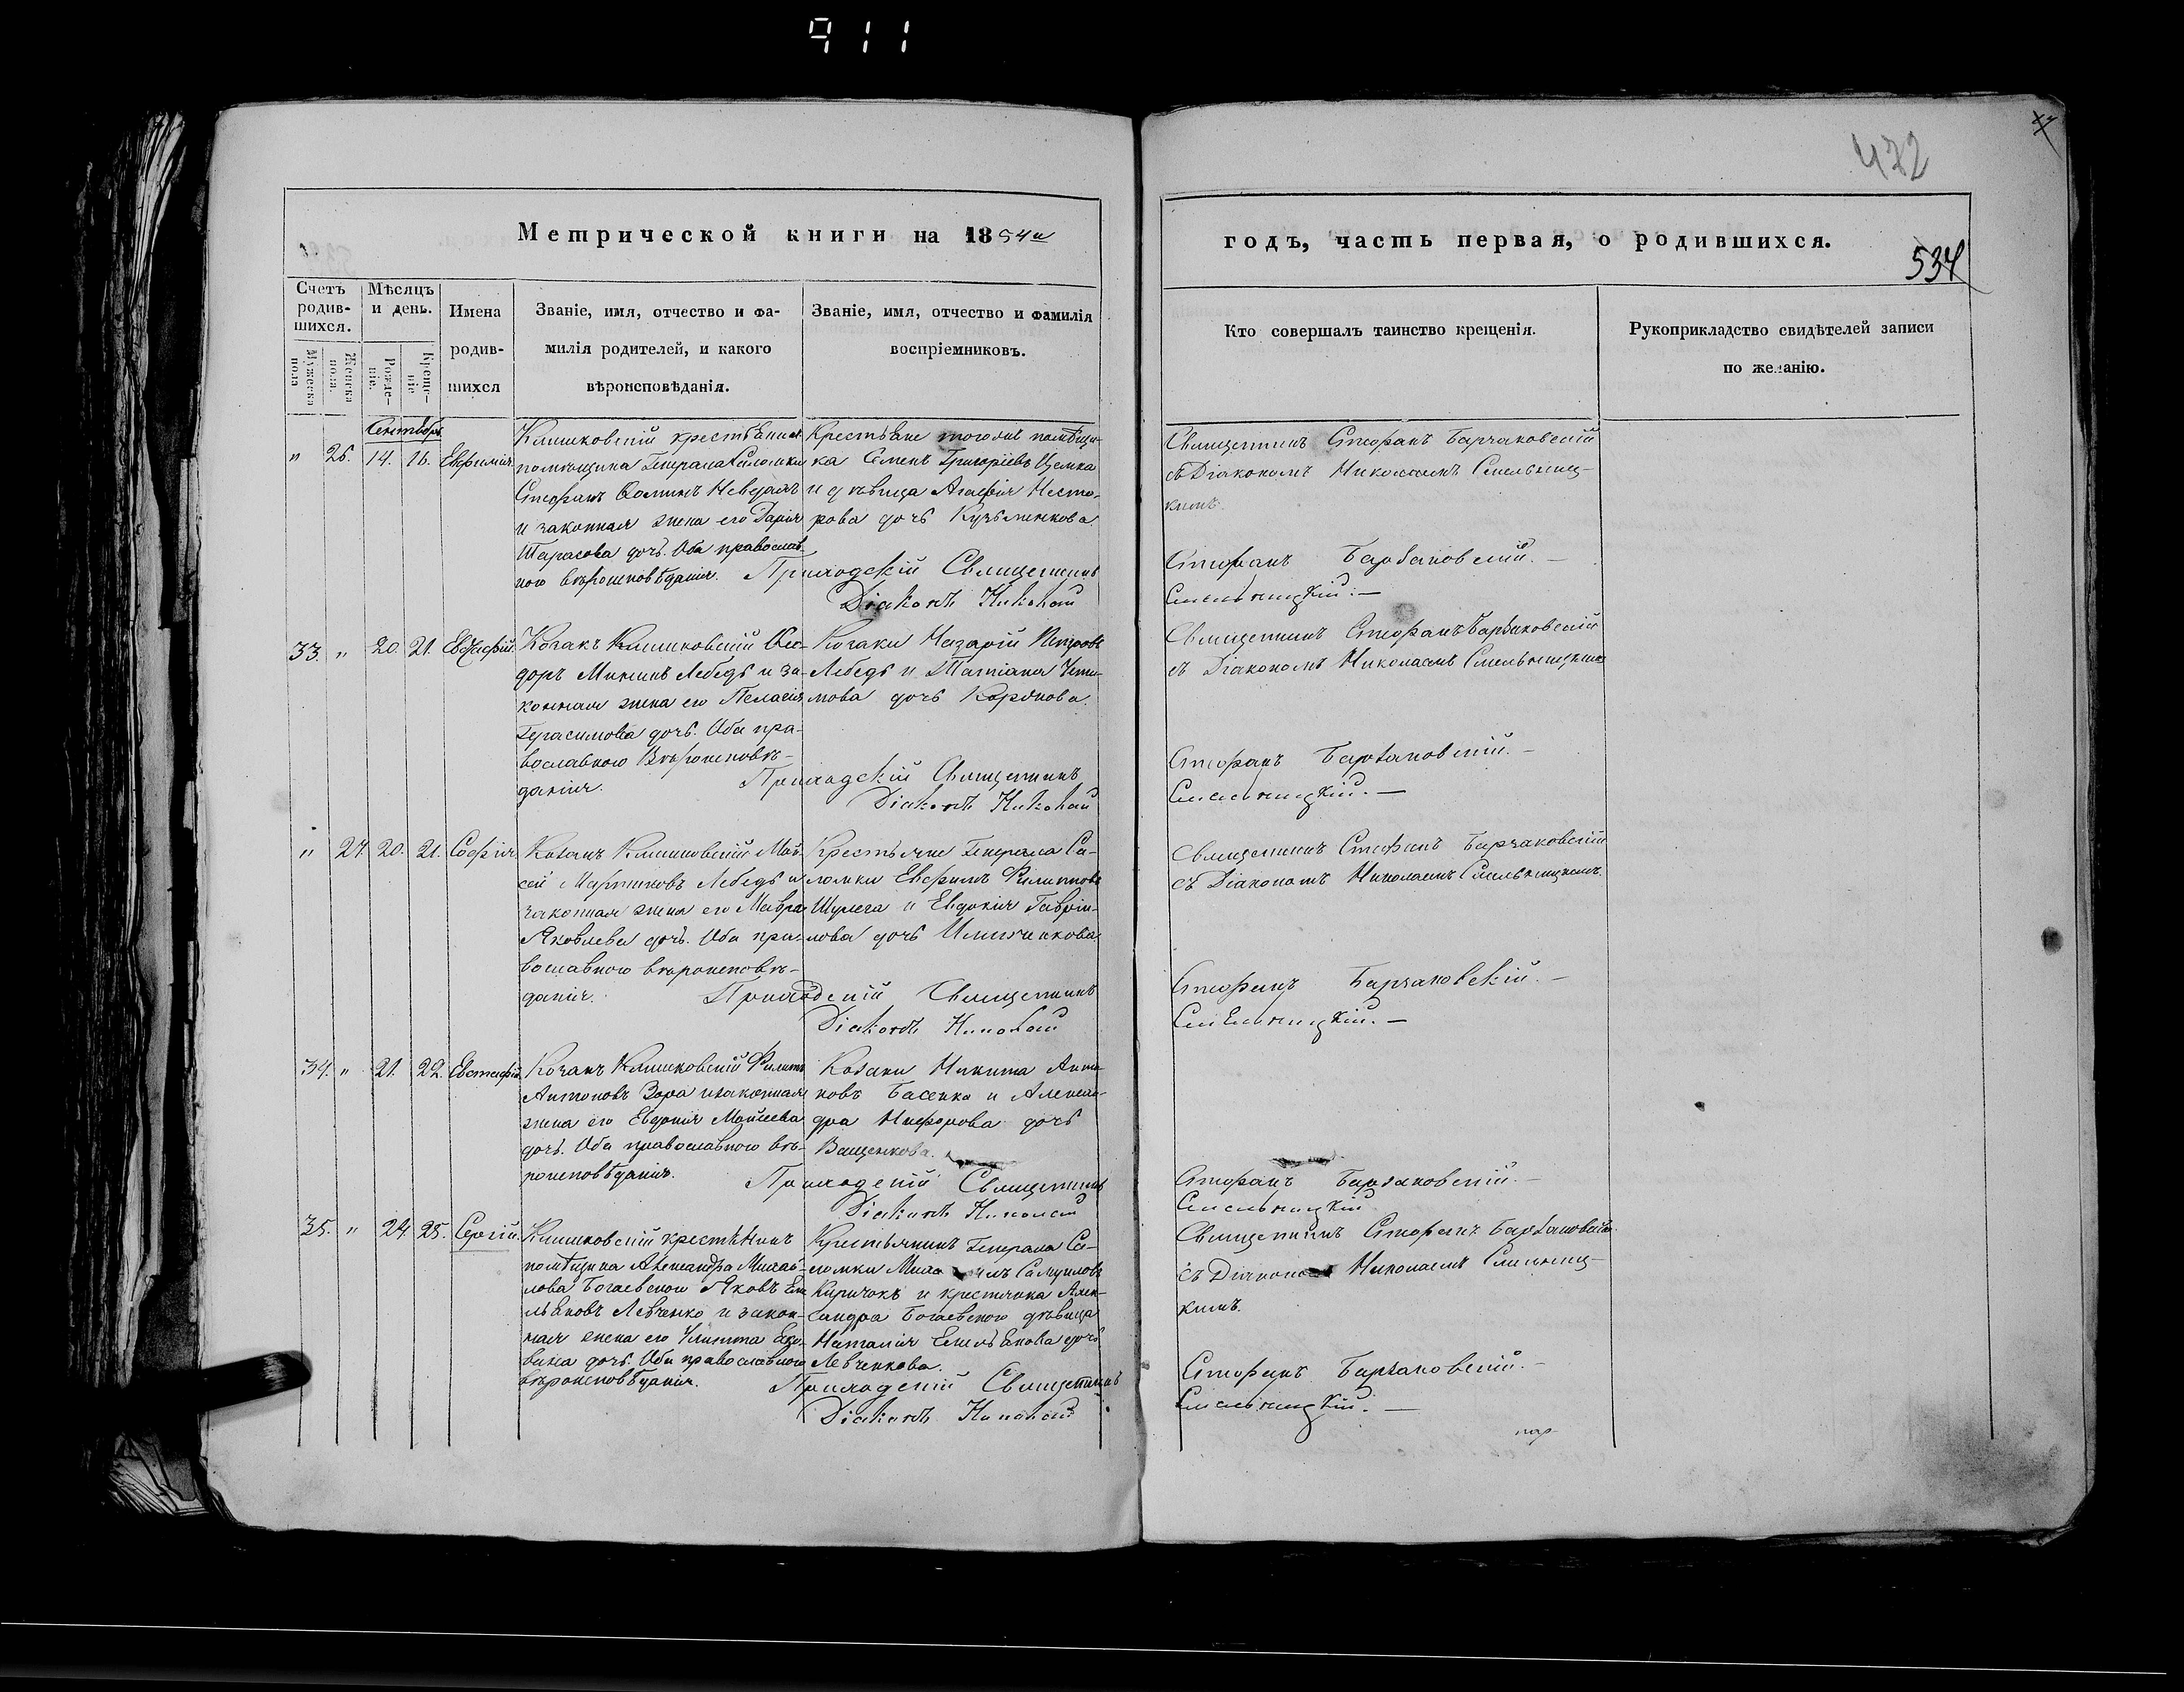 911
472
Метрической книги на 1854й
годъ, часть первая, о родившихся.
534
Счетъ родив-шихся.
Мужеска пола
Женска пола.
Мѣсяцъ и день.
Рожде-ніе.
Креще-ніе
Имена родив-шихся
Званіе, имя, отчество и фа-
милія родителей, и какого
вѣроисповѣданія.
Званіе, имя, отчество и фамилія
воспріемниковъ.
Кто совершалъ таинство крещенія.
Рукоприкладство свидѣтелей записи
по желанію.
Сентябрь
" 26. 14. 16. Евфимія.
Климковскій крестьянинъ
помѣщика Генерала Саломки
Стефанъ Ѳоминъ
и законная жена его Дарія
Тарасова дочь. Оба православ-
ного вѣроисповѣданія.
Крестьяне тогоже помѣщи-
ка Семенъ Григоріевъ Цемка
и дѣвица Агафія Несто-
рова дочь Кузьменкова.
Приходскій Священникъ
Діаконъ Николай
Священникъ Стефанъ Барзаковскій
съ Діакономъ Николаемъ Смельниц-
кимъ.
Стефанъ Барзаковскій.—
Смельницкій.—
33. " 20. 21. Евстафій.
Козакъ Климковскій Ѳео-
доръ Мининъ Лебедь и за-
конная жена его Пелагія
Герасимова дочь. Оба пра-
вославного Вѣроисповѣ-
данія.
Козаки Назарій Петровъ
Лебедь и Татіана Усти-
мова дочь
Приходскій Священникъ
Діаконъ Николай
Священникъ Стефанъ Барзаковскій
съ Діакономъ Николаемъ Смельницкимъ
Стефанъ Барзаковскій.—
Смельницкій.—
" 27. 20. 21. Софія
Козакъ Климковскій Мои-
сей Мартиновъ Лебедь и
законная жена его Мавра
Яковлева дочь. Оба пра-
вославного вѣроисповѣ-
данія.
Крестьяне Генерала Са-
ломки Евфимъ Филиповъ
Шулега и Евдокія Гаврі-
лова дочь
Приходскій Священникъ
Діаконъ Николай
Священникъ Стефанъ Барзаковскій
съ Діакономъ Николаемъ Смельницкимъ.
Стефанъ Барзаковскій.—
Смельницкій.—
34. " 21. 22. Евстафій
Козакъ Климковскій Филипъ
Антоновъ Зора и законная
жена его Евдокія Моисеева
дочь. Оба православного вѣ-
роисповѣданія.
Козаки Никита Анто-
новъ Басенко и Алексан-
дра Никифорова дочь
Ващенкова.
Приходскій Священникъ
Діаконъ Николай
Стефанъ Барзаковскій.—
Смельницкій
35. " 24. 25. Сергій.
Климковскій крестьянинъ
помѣщика Александра Михай-
лова Богаевского Яковъ Еме-
льяновъ Левченко и закон-
ная жена его Улитта
дочь. Оба православного
вѣроисповѣданія.
Крестьянинъ Генерала Са-
ломки Михаилъ Самуиловъ
Киричокъ и крестьянка Алек-
сандра Богаевского дѣвица
Наталія Емельянова дочь
Левченкова.
Приходскій Священникъ
Діаконъ Николай
Священникъ Стефанъ Барзаковскій
съ Діакономъ Николаемъ Смельниц-
кимъ.
Стефанъ Барзаковскій.—
Смельницкій.—